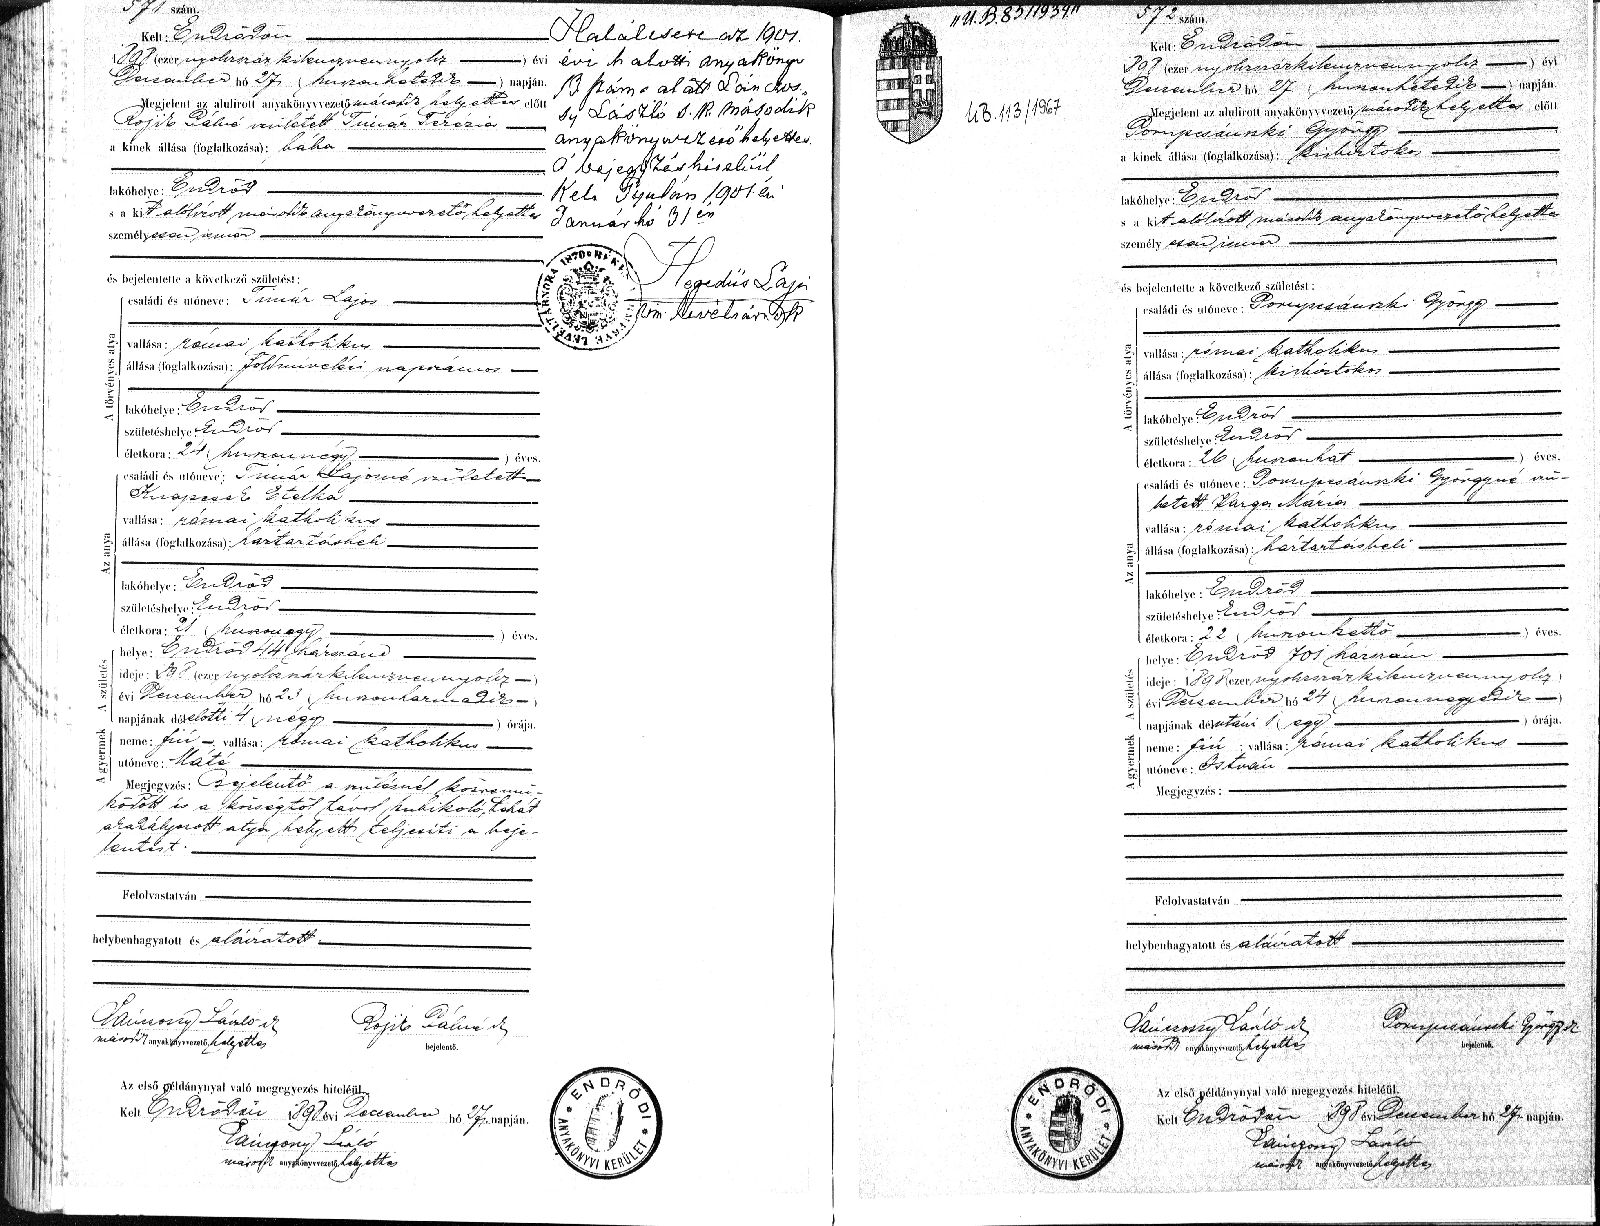 571 szám.
Kelt: Endrődön
1898 (ezer nyolczszázkilenczvennyolcz) évi
December hó 27 (huszonhetedik) napján.
Megjelent az alulirott anyakönyvvezető második helyettes előtt
Rojik Pálné született Timár Terézia
a kinek állása (foglalkozása): bába
lakóhelye: Endrőd
s a kit alólirott második anyakönyvvezető helyettes
személyesen ismer
és bejelentette a következő születést:
A törvényes atya
családi és utóneve: Timár Lajos
vallása: római katholikus
állása (foglalkozása): földmivelési napszámos
lakóhelye: Endrőd
születéshelye: Endrőd
életkora: 24 (huszonnégy) éves.
Az anya
családi és utóneve: Timár Lajosné született
Knapcsek Etelka
vallása: római katholikus
állása (foglalkozása): háztartásbeli
lakóhelye: Endrőd
születéshelye: Endrőd
életkora: 21 (huszonegy) éves.
A születés
helye: Endrőd 44 házszám
ideje: 1898 (ezer nyolczszázkilenczvennyolcz)
évi December hó 23 (huszonharmadik)
napjának délelőtti 4 (négy) órája.
A gyermek
neme: fiú vallása: római katholikus
utóneve: Máté
Megjegyzés: Bejelentő a szülésnél közremü-
ködött és a községtől távol
atya helyett teljesiti a beje-
lentést.
Felolvastatván
helybenhagyatott és aláiratott.
Lánczony László sk
második anyakönyvvezető helyettes
Rojik Pálné sk
bejelentő.
Az első példánynyal való megegyezés hiteléül.
Kelt Endrődön 1898 évi December hó 27 napján.
Lánczony László
második anyakönyvvezető helyettes
ENDRŐDI
ANYAKÖNYVI KERÜLET
Halálesete az 1901.
évi halotti anyakönyv
13 száma alatt Lánczos-
sy László s.k. második
anyakönyvvezető helyettes.
A bejegyzés hiteléül
Kelt Gyulán, 1901 évi
Január hó 31 én
Hegedüs Lajos
"U.B. 85/1939"
UB. 113/1967
572 szám.
Kelt: Endrődön
1898 (ezer nyolczszázkilenczvennyolcz) évi
December hó 27 (huszonhetedik) napján.
Megjelent az alulirott anyakönyvvezető második helyettes előtt
Pompcsánszki György
a kinek állása (foglalkozása): kisbirtokos
lakóhelye: Endrőd
s a kit alólirott második anyakönyvvezető helyettes
személyesen ismer
és bejelentette a következő születést:
A törvényes atya
családi és utóneve: Pompcsánszki György
vallása: római katholikus
állása (foglalkozása): kisbirtokos
lakóhelye: Endrőd
születéshelye: Endrőd
életkora: 26 (huszonhat) éves.
Az anya
családi és utóneve: Pompcsánszki Györgyné szü-
letett Varga Mária
vallása: római katholikus
állása (foglalkozása): háztartásbeli
lakóhelye: Endrőd
születéshelye: Endrőd
életkora: 22 (huszonkettő) éves.
A születés
helye: Endrőd 701 házszám
ideje: 1898 (ezer nyolczszázkilenczvennyolcz)
évi December hó 24 (huszonnegyedik)
napjának délutáni 1 (egy) órája.
A gyermek
neme: fiú; vallása: római katholikus
utóneve: István
Megjegyzés:
Felolvastatván
helybenhagyatott és aláiratott
Lánczony László sk
második anyakönyvvezető helyettes
Pompcsánszki György sk
bejelentő.
Az első példánynyal való megegyezés hiteléül.
Kelt Endrődön 1898 évi December hó 27 napján.
Lánczony László
második anyakönyvvezető helyettes
ENDRŐDI
ANYAKÖNYVI KERÜLET